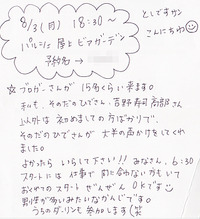 8/3(月) 18:30〜
パルシェ 屋上 ビアガーデン
予約名 →
としですサン
こんにちわ
☆ブロガーさんが15名くらい来ます。
私も、そのだのひでさん、吉野寿司斎部さん
以外は初めましての方ばかりで、
そのだのひでさんが大半の声かけをしてくれ
ました。
よかったら いらして下さい!! みなさん、6:30
スタートには 仕事で 間に合わない方もいて
おくやのスタート ぜんぜん OKです
男性が多いみたいなかんじです。
うちのダーリンも参加します(笑